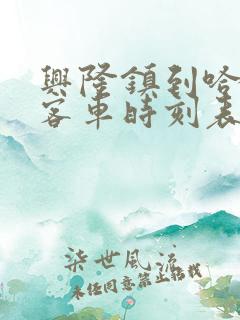 興隆鎮到哈
客車時刻表
柒世風流
未经同意禁止转载